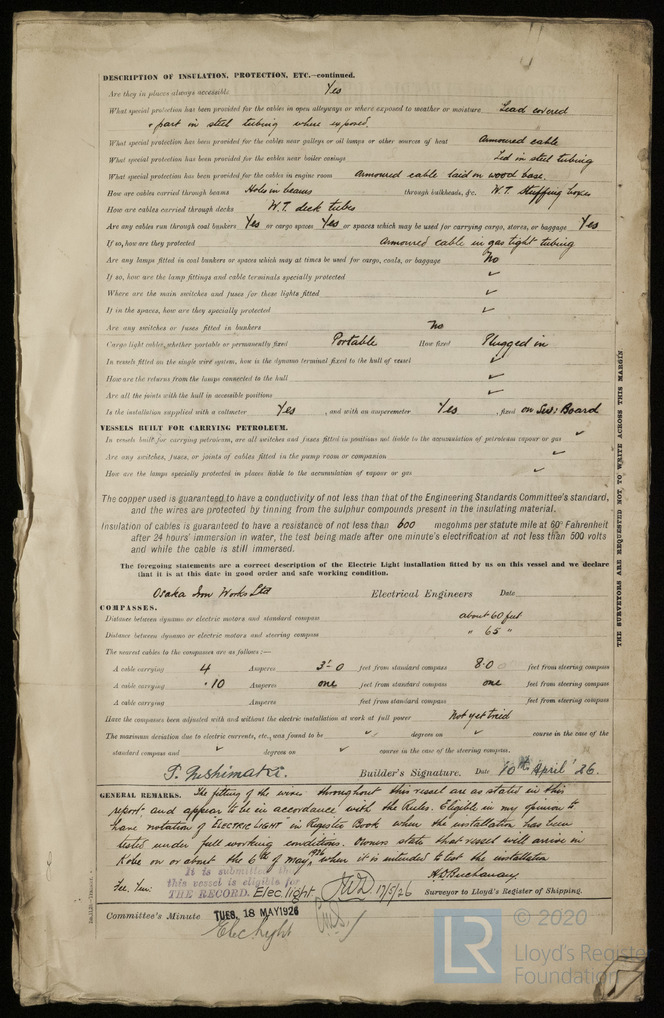 DESCRIPTION OF INSULATION, PROTECTION, ETC.—continued.
Are they in places always accessible Yes
What special protection has been provided for the cables in open alleyways or where exposed to weather or moisture Lead covered
& part in steel tubing where exposed.
What special protection has been provided for the cables near galleys or oil lamps or other sources of heat Armoured cable
What special protection has been provided for the cables near boiler casings Led in steel tubing
What special protection has been provided for the cables in engine room Armoured cable laid on wood base.
How are cables carried through beams Holes in beams through bulkheads, &c. W.T. Stuffing boxes
How are cables carried through decks W.T. deck tubes
Are any cables run through coal bunkers Yes or cargo spaces Yes or spaces which may be used for carrying cargo, stores, or baggage Yes
If so, how are they protected Armoured cable in gas tight tubing
Are any lamps fitted in coal bunkers or spaces which may at times be used for cargo, coals, or baggage No
If so, how are the lamp fittings and cable terminals specially protected ✓
Where are the main switches and fuses for these lights fitted ✓
If in the spaces, how are they specially protected ✓
Are any switches or fuses fitted in bunkers no
Cargo light cables, whether portable or permanently fixed Portable How fixed Plugged in
In vessels fitted on the single wire system, how is the dynamo terminal fixed to the hull of vessel ✓
How are the returns from the lamps connected to the hull ✓
Are all the joints with the hull in accessible positions ✓
Is the installation supplied with a voltmeter Yes , and with an amperemeter Yes , fixed on Sw: Board
VESSELS BUILT FOR CARRYING PETROLEUM.
In vessels built for carrying petroleum, are all switches and fuses fitted in positions not liable to the accumulation of petroleum vapour or gas ✓
Are any switches, fuses, or joints of cables fitted in the pump room or companion ✓
How are the lamps specially protected in places liable to the accumulation of vapour or gas ✓
The copper used is guaranteed to have a conductivity of not less than that of the Engineering Standards Committee's standard,
and the wires are protected by tinning from the sulphur compounds present in the insulating material.
Insulation of cables is guaranteed to have a resistance of not less than 600 megohms per statute mile at 60° Fahrenheit
after 24 hours' immersion in water, the test being made after one minute's electrification at not less than 500 volts
and while the cable is still immersed.
The foregoing statements are a correct description of the Electric Light installation fitted by us on this vessel and we declare
that it is at this date in good order and safe working condition.
Osaka Iron Works Ltd Electrical Engineers Date
COMPASSES.
Distance between dynamo or electric motors and standard compass about 60 feet
Distance between dynamo or electric motors and steering compass " 65 "
The nearest cables to the compasses are as follows:—
A cable carrying 4 Amperes 3'-0 feet from standard compass 8.0 feet from steering compass
A cable carrying .10 Amperes one feet from standard compass one feet from steering compass
A cable carrying Amperes feet from standard compass feet from steering compass
Have the compasses been adjusted with and without the electric installation at work at full power Not yet tried
The maximum deviation due to electric currents, etc., was found to be ✓ degrees on ✓ course in the case of the
standard compass and ✓ degrees on ✓ course in the case of the steering compass.
Builder's Signature. Date 10th April '26.
GENERAL REMARKS. The fitting of the wires throughout this vessel are as stated in this
report and appear to be in accordance with the Rules. Eligible in my opinion to
have notation of "ELECTRIC LIGHT" in Register Book when the installation has been
tested under full working conditions. Owners state that vessel will arrive in
Kobe on or about the 6th of May, 1926 when it is intended to test the installation
It is submitted that
this vessel is eligible for
THE RECORD. Elec. light 17/5/26
H.D. Buchanan
Surveyor to Lloyd's Register of Shipping.
Committee's Minute TUES. 18 MAY 1926
Elec Light
THE SURVEYORS ARE REQUESTED NOT TO WRITE ACROSS THIS MARGIN
LR
© 2020
Lloyd's Register
Foundation